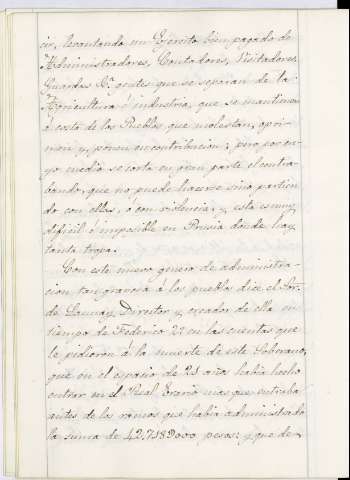 cir, levantando un Ejército bien pagado de
Administradores, Contadores, Visitadores,
Guardas &ª gentes que se separan de la
Agricultura é industria, que se mantienen
á costa de los Pueblos que molestan, opri-
men y ponen en contribucion; pero por cu-
yo medio se corta en gran parte el contra-
bando, que no puede hacerse sino partien-
do con ellos, ó con violencia, y esta es muy
dificil é imposible en Prusia donde hay
tanta tropa.
Con este nuevo genero de administra-
cion tan gravosa á los pueblos dice el Sor.
de Launay, Director y creador de ella en
tiempo de Federico 2º en las cuentas que
le pidieron á la muerte de este Soberano,
que en el espacio de 21 años habia hecho
entrar en el Real Erario mas que entraba
antes de los ramos que habia administrado
la suma de 42.7189000 pesos: y que de-